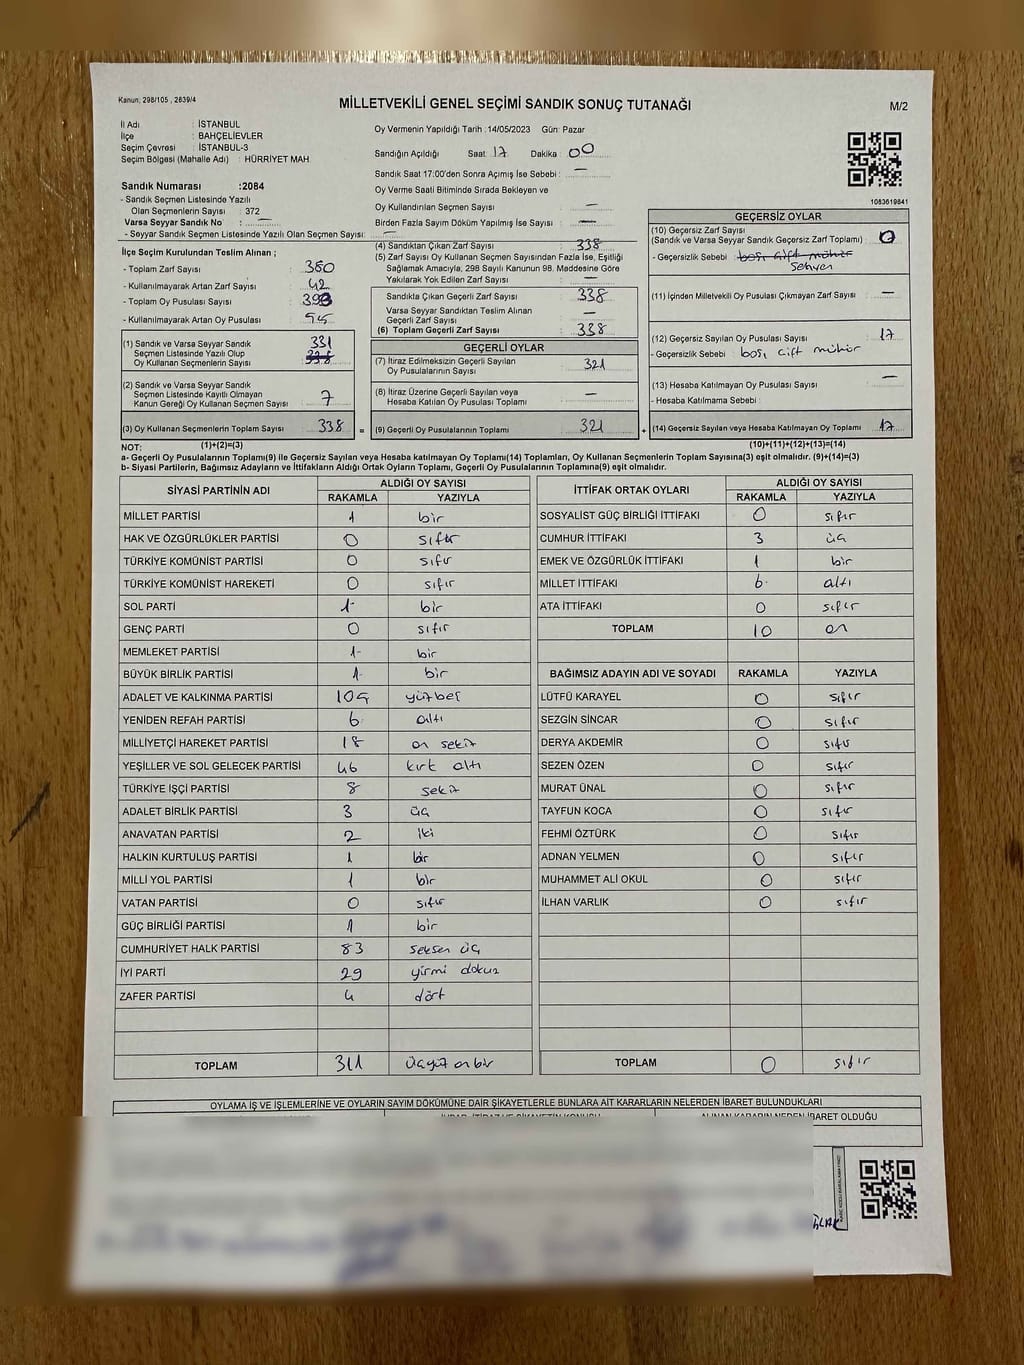 Kanun; 298/105 , 2839/4
MİLLETVEKİLİ GENEL SEÇİMİ SANDIK SONUÇ TUTANAĞI
M/2
İl Adı : İSTANBUL
İlçe : BAHÇELİEVLER
Seçim Çevresi : İSTANBUL-3
Seçim Bölgesi (Mahalle Adı) : HÜRRİYET MAH.
Sandık Numarası :2084
- Sandık Seçmen Listesinde Yazılı
Olan Seçmenlerin Sayısı : 372
Varsa Seyyar Sandık No : —
- Seyyar Sandık Seçmen Listesinde Yazılı Olan Seçmen Sayısı: —
Oy Vermenin Yapıldığı Tarih :14/05/2023 Gün: Pazar
Sandığın Açıldığı Saat: 17 Dakika: 00
Sandık Saat 17:00'den Sonra Açımış İse Sebebi : —
Oy Verme Saati Bitiminde Sırada Bekleyen ve
Oy Kullandırılan Seçmen Sayısı : —
Birden Fazla Sayım Döküm Yapılmış İse Sayısı : —
1083619841
İlçe Seçim Kurulundan Teslim Alınan ;
- Toplam Zarf Sayısı : 380
- Kullanılmayarak Artan Zarf Sayısı : 42
- Toplam Oy Pusulası Sayısı : 393
- Kullanılmayarak Artan Oy Pusulası : 55
(1) Sandık ve Varsa Seyyar Sandık 331
Seçmen Listesinde Yazılı Olup 338
Oy Kullanan Seçmenlerin Sayısı
(2) Sandık ve Varsa Seyyar Sandık
Seçmen Listesinde Kayıtlı Olmayan
Kanun Gereği Oy Kullanan Seçmen Sayısı 7
(3) Oy Kullanan Seçmenlerin Toplam Sayısı 338 =
(4) Sandıktan Çıkan Zarf Sayısı : 338
(5) Zarf Sayısı Oy Kullanan Seçmen Sayısından Fazla İse, Eşitliği
Sağlamak Amacıyla, 298 Sayılı Kanunun 98. Maddesine Göre
Yakılarak Yok Edilen Zarf Sayısı : —
Sandıkla Çıkan Geçerli Zarf Sayısı : 338
Varsa Seyyar Sandıktan Teslim Alınan
Geçerli Zarf Sayısı : —
(6) Toplam Geçerli Zarf Sayısı : 338
GEÇERLİ OYLAR
(7) İtiraz Edilmeksizin Geçerli Sayılan
Oy Pusulalarının Sayısı : 321
(8) İtiraz Üzerine Geçerli Sayılan veya
Hesaba Katılan Oy Pusulası Toplamı : —
(9) Geçerli Oy Pusulalarının Toplamı : 321 +
GEÇERSİZ OYLAR
(10) Geçersiz Zarf Sayısı
(Sandık ve Varsa Seyyar Sandık Geçersiz Zarf Toplamı) : 0
- Geçersizlik Sebebi : boş, çift mühür
Sehven
(11) İçinden Milletvekili Oy Pusulası Çıkmayan Zarf Sayısı : —
(12) Geçersiz Sayılan Oy Pusulası Sayısı : 17
- Geçersizlik Sebebi : boş, çift mühür
(13) Hesaba Katılmayan Oy Pusulası Sayısı : —
- Hesaba Katılmama Sebebi :
(14) Geçersiz Sayılan veya Hesaba Katılmayan Oy Toplamı : 17
NOT: (1)+(2)=(3) (10)+(11)+(12)+(13)=(14)
a- Geçerli Oy Pusulalarının Toplamı(9) ile Geçersiz Sayılan veya Hesaba katılmayan Oy Toplamı(14) Toplamları, Oy Kullanan Seçmenlerin Toplam Sayısına(3) eşit olmalıdır. (9)+(14)=(3)
b- Siyasi Partilerin, Bağımsız Adayların ve İttifakların Aldığı Ortak Oyların Toplamı, Geçerli Oy Pusulalarının Toplamına(9) eşit olmalıdır.
SİYASİ PARTİNİN ADI ALDIĞI OY SAYISI
RAKAMLA YAZIYLA
MİLLET PARTİSİ 1 bir
HAK VE ÖZGÜRLÜKLER PARTİSİ 0 sıfır
TÜRKİYE KOMÜNİST PARTİSİ 0 sıfır
TÜRKİYE KOMÜNİST HAREKETİ 0 sıfır
SOL PARTİ 1 bir
GENÇ PARTİ 0 sıfır
MEMLEKET PARTİSİ 1 bir
BÜYÜK BİRLİK PARTİSİ 1 bir
ADALET VE KALKINMA PARTİSİ 105 yüzbeş
YENİDEN REFAH PARTİSİ 6 altı
MİLLİYETÇİ HAREKET PARTİSİ 18 on sekiz
YEŞİLLER VE SOL GELECEK PARTİSİ 46 kırk altı
TÜRKİYE İŞÇİ PARTİSİ 8 sekiz
ADALET BİRLİK PARTİSİ 3 üç
ANAVATAN PARTİSİ 2 iki
HALKIN KURTULUŞ PARTİSİ 1 bir
MİLLİ YOL PARTİSİ 1 bir
VATAN PARTİSİ 0 sıfır
GÜÇ BİRLİĞİ PARTİSİ 1 bir
CUMHURİYET HALK PARTİSİ 83 seksen üç
İYİ PARTİ 29 yirmi dokuz
ZAFER PARTİSİ 4 dört
TOPLAM 311 üçyüz on bir
İTTİFAK ORTAK OYLARI ALDIĞI OY SAYISI
RAKAMLA YAZIYLA
SOSYALİST GÜÇ BİRLİĞİ İTTİFAKI 0 sıfır
CUMHUR İTTİFAKI 3 üç
EMEK VE ÖZGÜRLÜK İTTİFAKI 1 bir
MİLLET İTTİFAKI 6 altı
ATA İTTİFAKI 0 sıfır
TOPLAM 10 on
BAĞIMSIZ ADAYIN ADI VE SOYADI RAKAMLA YAZIYLA
LÜTFÜ KARAYEL 0 sıfır
SEZGİN SİNCAR 0 sıfır
DERYA AKDEMİR 0 sıfır
SEZEN ÖZEN 0 sıfır
MURAT ÜNAL 0 sıfır
TAYFUN KOCA 0 sıfır
FEHMİ ÖZTÜRK 0 sıfır
ADNAN YELMEN 0 sıfır
MUHAMMET ALİ OKUL 0 sıfır
İLHAN VARLIK 0 sıfır
TOPLAM 0 sıfır
OYLAMA İŞ VE İŞLEMLERİNE VE OYLARIN SAYIM DÖKÜMÜNE DAİR ŞİKAYETLERLE BUNLARA AİT KARARLARIN NELERDEN İBARET BULUNDUKLARI
ALINAN KARARIN NEDEN İBARET OLDUĞU